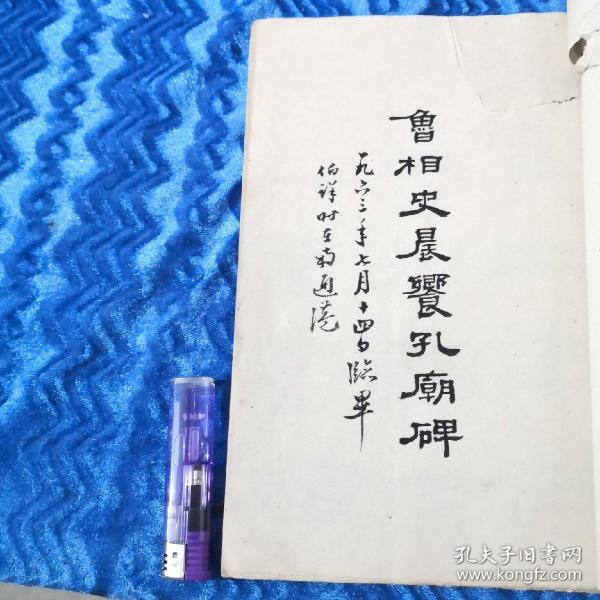 魯相史晨饗孔廟碑
一九六三年七月十四日臨畢
伯詳时在南通港
孔夫子旧書网
www.kongfz.com